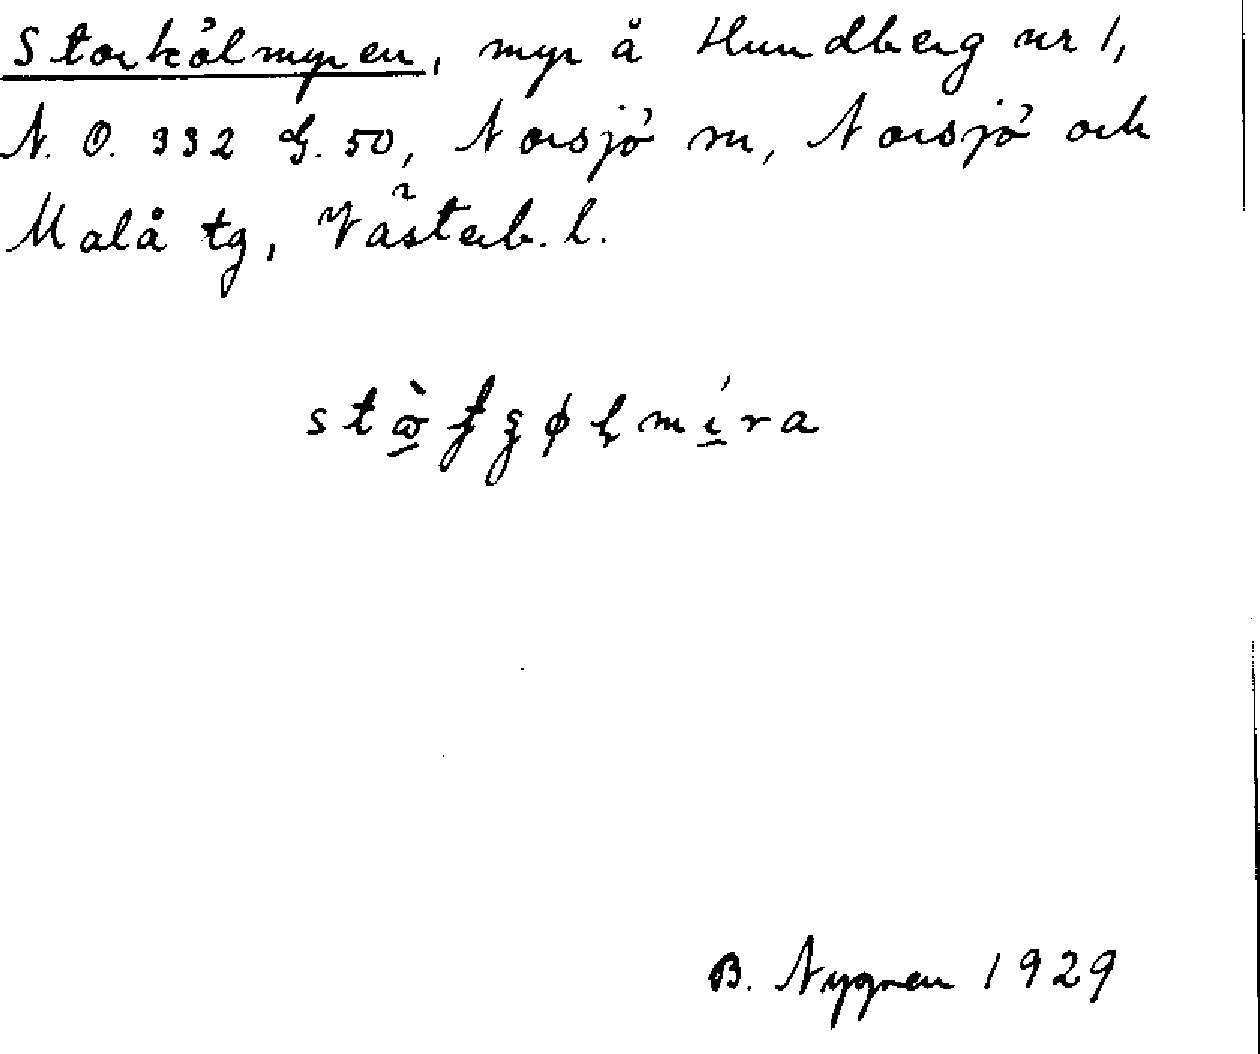 Storkölmyren, myr å Hundberg nr 1,
N. O. 332 G. 50, Norsjö sn, Norsjö och
Malå tg, Västerb. l.
B. Nygren 1929